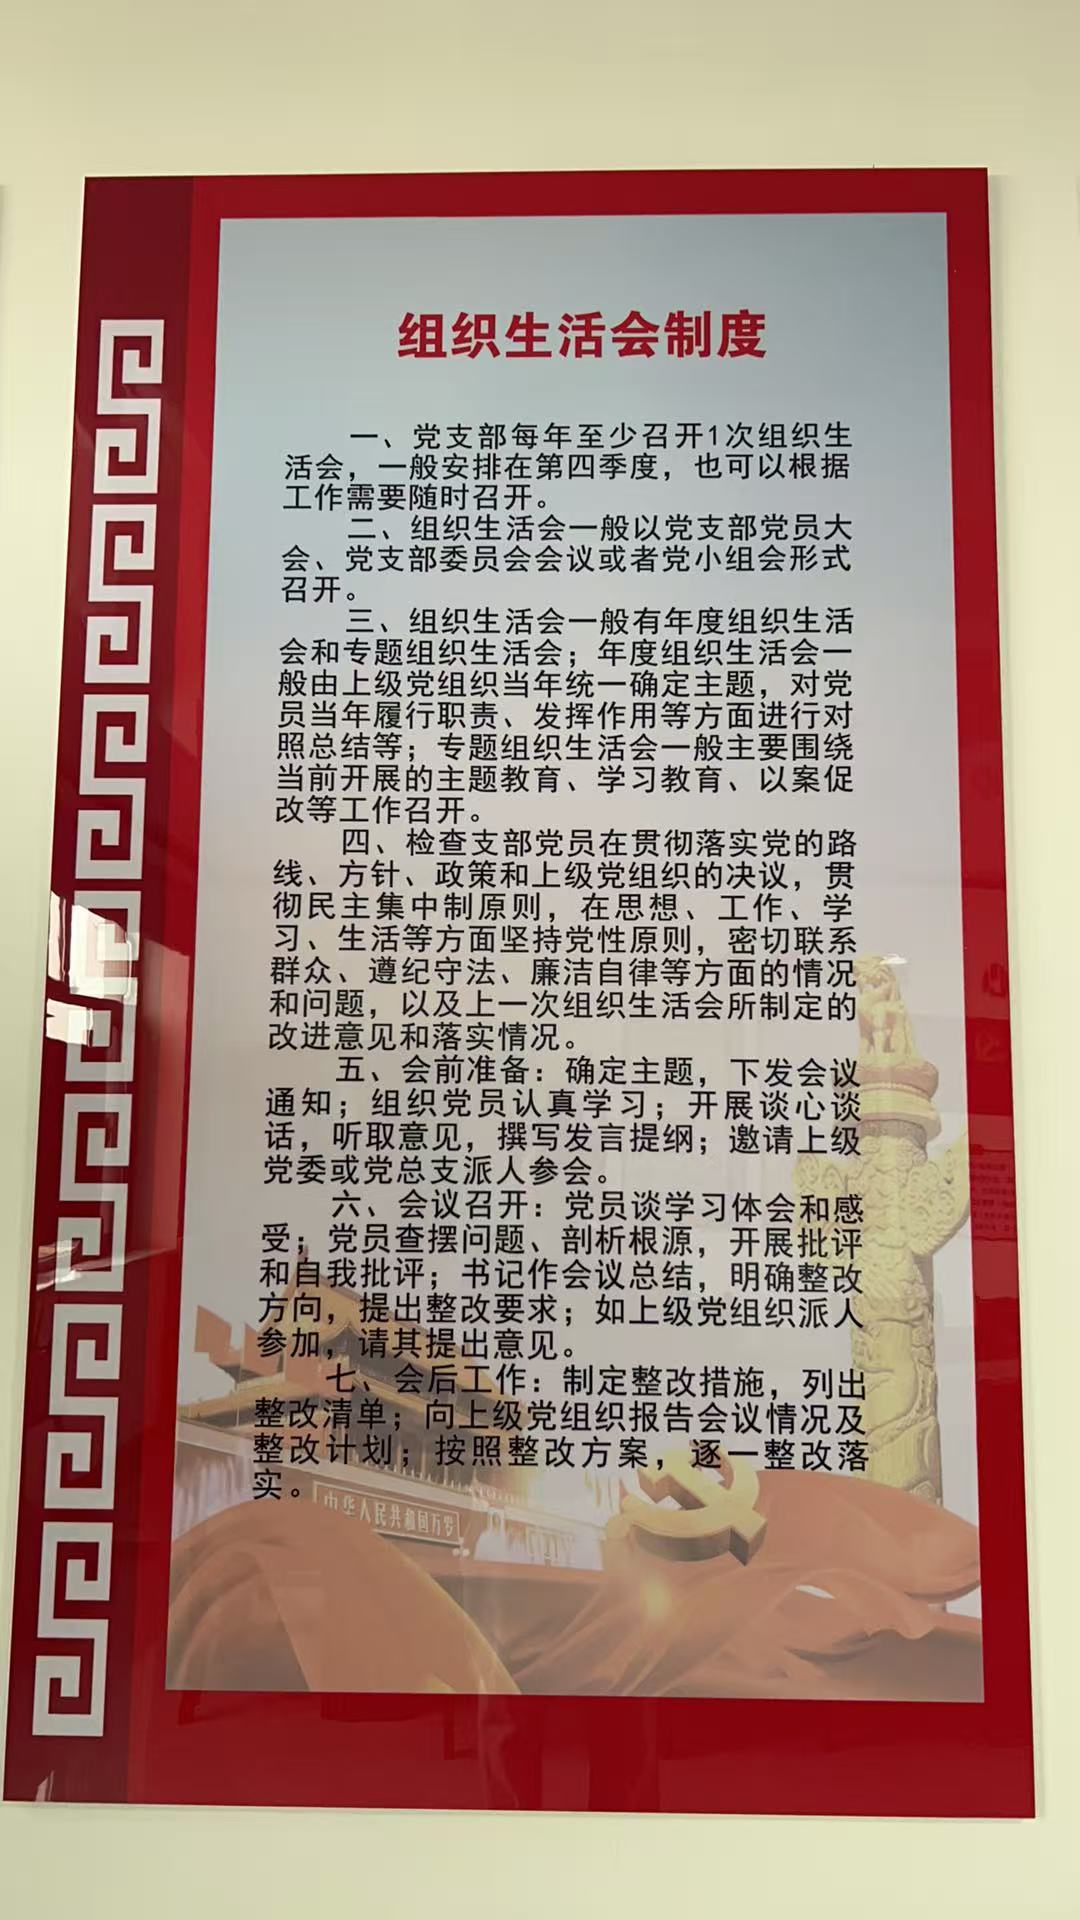 组织生活会制度
一、党支部每年至少召开1次组织生
活会，一般安排在第四季度，也可以根据
工作需要随时召开。
二、组织生活会一般以党支部党员大
会、党支部委员会会议或者党小组会形式
召开。
三、组织生活会一般有年度组织生活
会和专题组织生活会；年度组织生活会一
般由上级党组织当年统一确定主题，对党
员当年履行职责、发挥作用等方面进行对
照总结等；专题组织生活会一般主要围绕
当前开展的主题教育、学习教育、以案促
改等工作召开。
四、检查支部党员在贯彻落实党的路
线、方针、政策和上级党组织的决议，贯
彻民主集中制原则，在思想、工作、学
习、生活等方面坚持党性原则，密切联系
群众、遵纪守法、廉洁自律等方面的情况
和问题，以及上一次组织生活会所制定的
改进意见和落实情况。
五、会前准备：确定主题，下发会议
通知；组织党员认真学习；开展谈心谈
话，听取意见，撰写发言提纲；邀请上级
党委或党总支派人参会。
六、会议召开：党员谈学习体会和感
受；党员查摆问题、剖析根源，开展批评
和自我批评；书记作会议总结，明确整改
方向，提出整改要求；如上级党组织派人
参加，请其提出意见。
七、会后工作：制定整改措施，列出
整改清单；向上级党组织报告会议情况及
整改计划；按照整改方案，逐一整改落
实。
中华人民共和国万岁